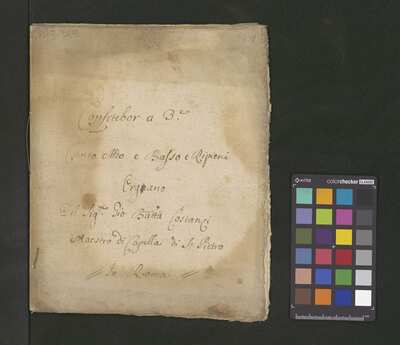 Confitebor a 3.e
Canto Alto e Basso e Ripieni
Organo
Del Sig.r Gio Batta Costanzi
Maestro di Capella di S. Pietro
In Roma
x-rite
colorchecker CLASSIC